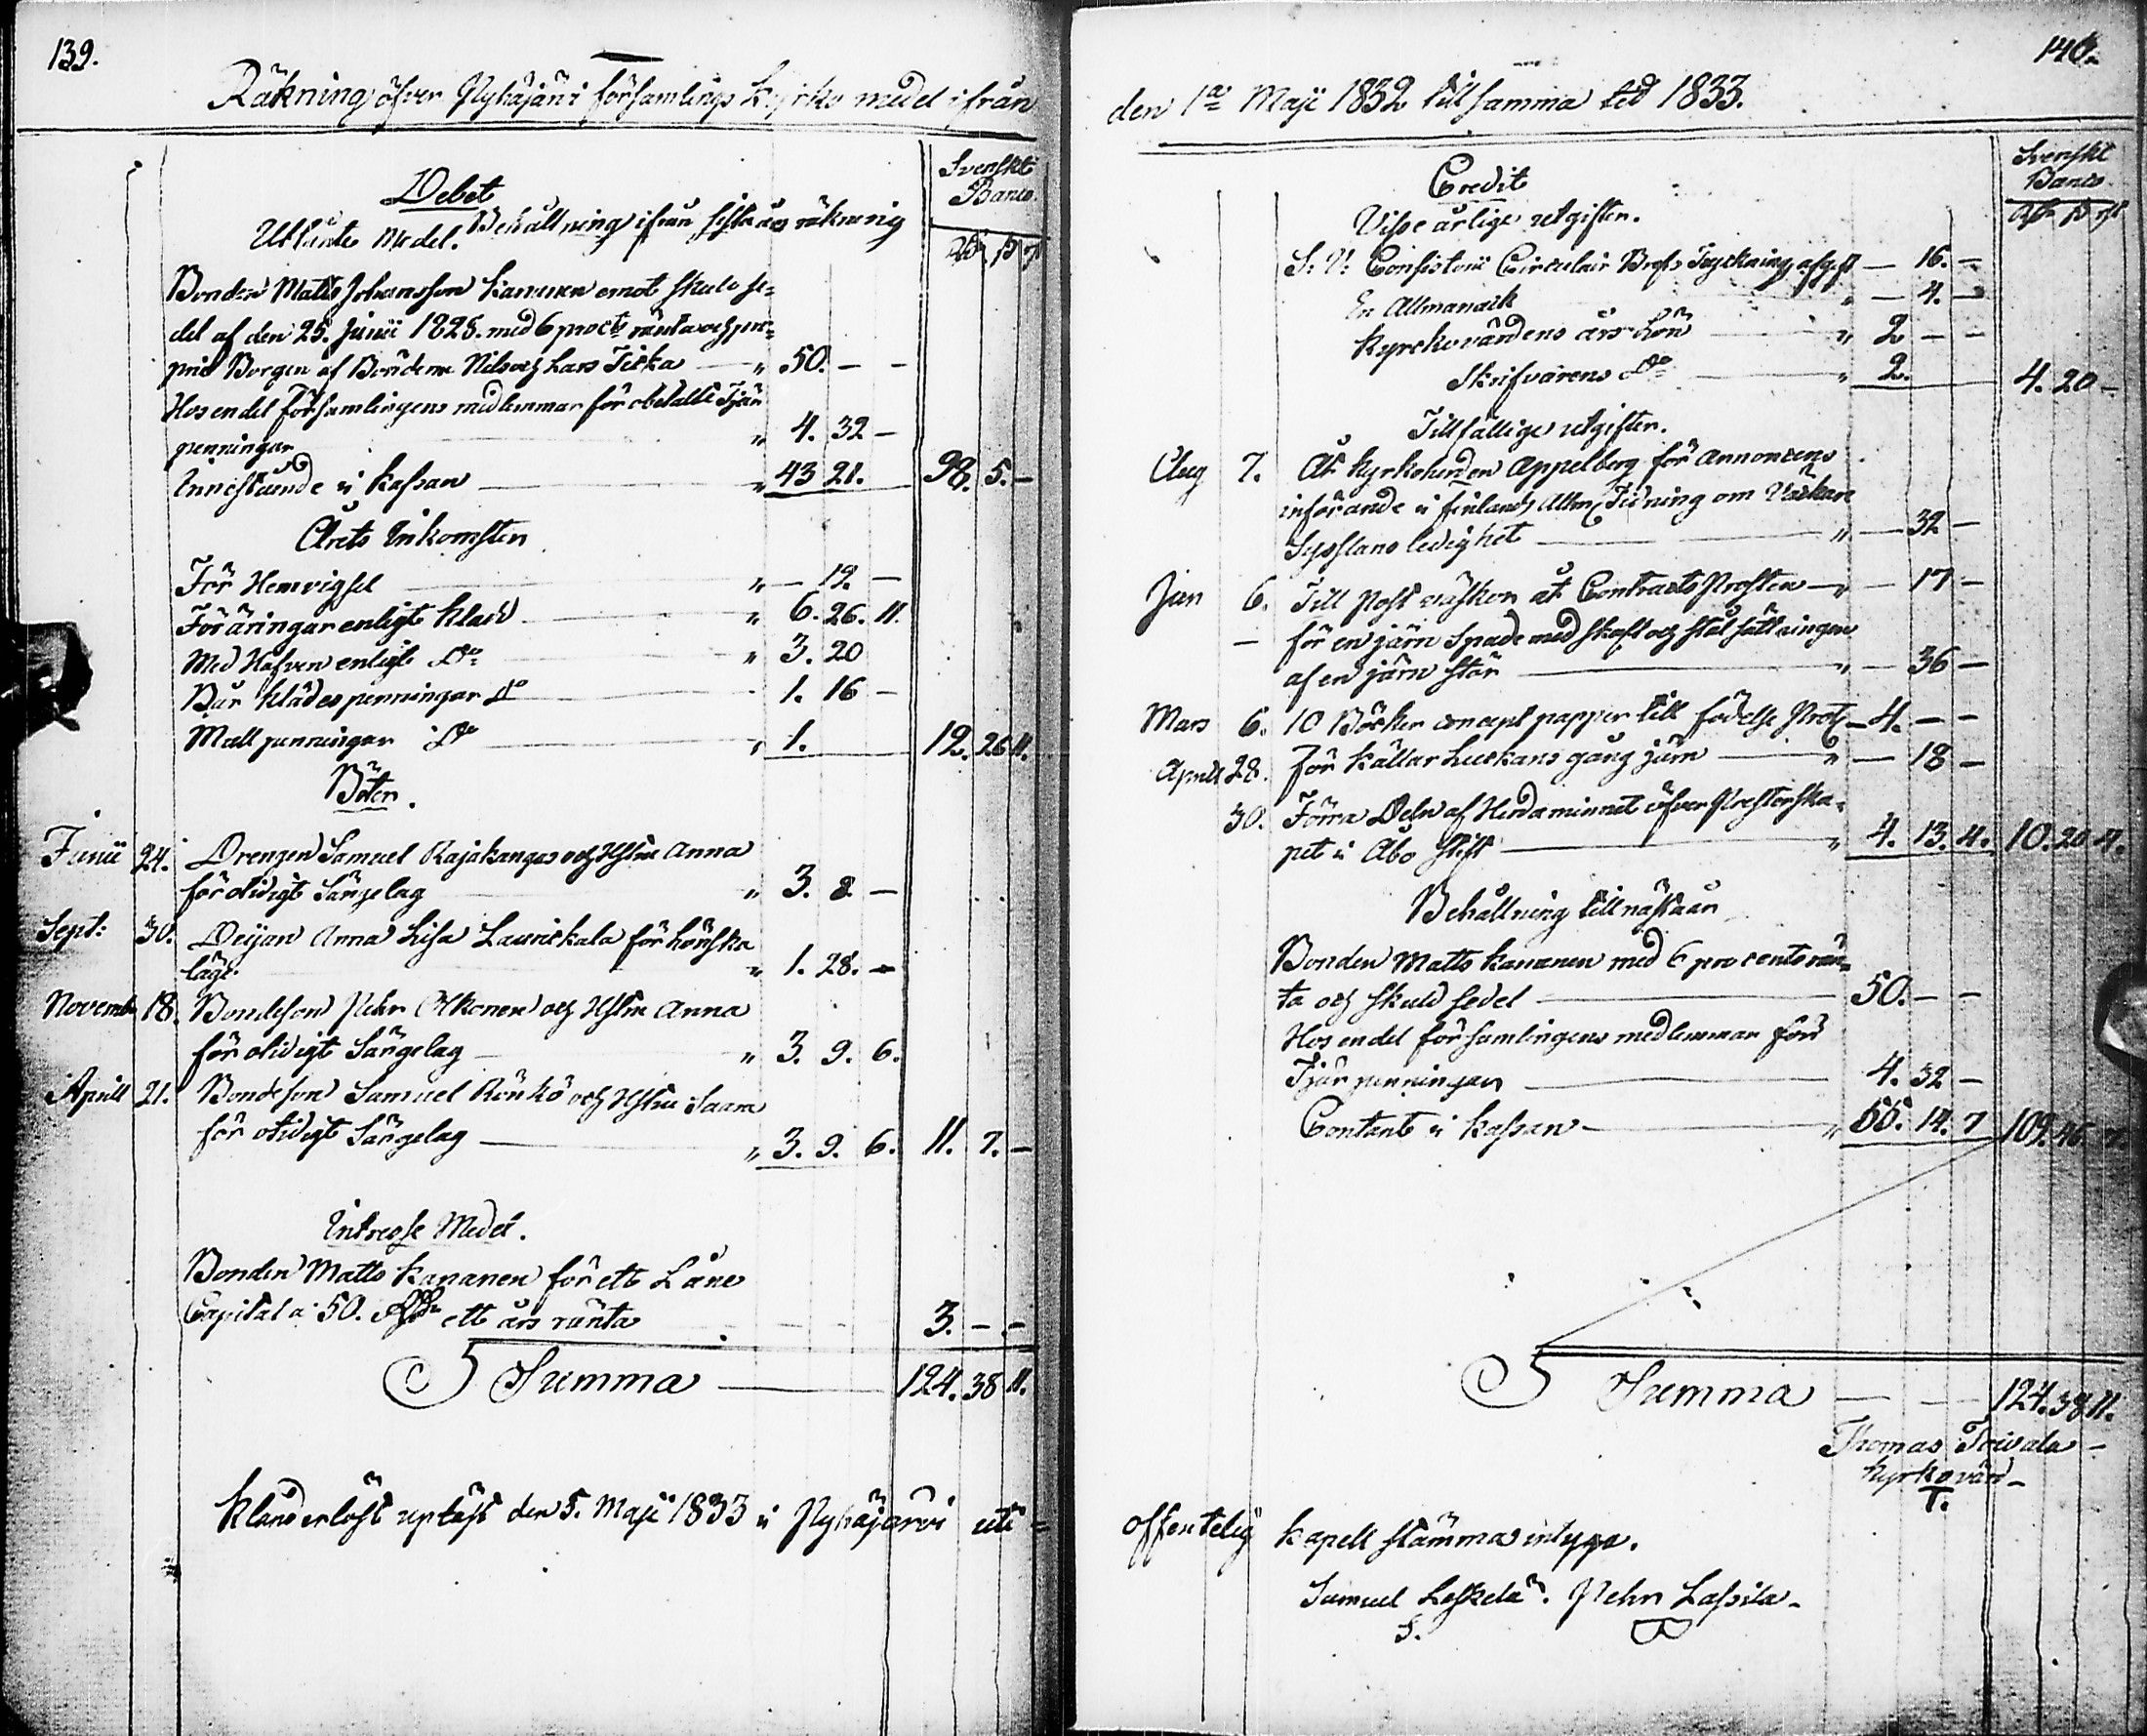 139.
Räkning öfver Pyhäjärvi församlings Kyrko medel ifrån
Svenskt
Banco.
Debet
Behållning ifrån sista års räkning
Utlånte Medel.
Bonden Matts Johansson Kananen emot skulds se-
del af den 25. Junii 1828. med 6 procts ränta och pro-
prie Borgen af Bönderne Nils och Lars Tiska — " 50. — —
Hos en del församlingens medlemmar för obetalte Tjär
penningar " 4. 32 —
Innestående i Kassan — " 43 21. 98. 5. —
Årets Inkomster
För Hemvigsel — " — 12. —
Föräringar enligt Kladd — " 6. 26. 11.
Med Hafven enligt Do — " 3. 20
Bår Klädes penningar Do — 1. 16 —
Mull penningar Do — " 1. 12. 26 11.
Böter.
Junii 24. Drengen Samuel Rajakangas och Hstru Anna
för otidigt Sängelag " 3. 8. —
Sept: 30. Pijan Anna Lisa Lauriskala för lönska
läge. " 1. 28. —
Novemb 18. Bondeson Pehr Okkonen och Hstru Anna
för otidigt Sängelag — " 3. 9. 6.
Aprill 21. Bondeson Samuel Rönkö och Hstru Saara
för otidigt Sängelag — " 3. 9. 6. 11. 7. —
Intresse Medel.
Bonden Matts Kananen för ett Låne
Capital a 50. ett års ränta 3. — —
Summa — 124. 38 11.
Klanderlöst upläst den 5. Maji 1833 i Pyhäjärvi uti
140.
den 1a Maji 1832 till samma tid 1833.
Svenskt
Banco.
Credit
Visse årlige utgifter.
S: V: Consistorii Circulair Brefs Tryckning afgift — 16. —
En Allmanack " — 4. —
Kyrkovärdens års Lön — " 2 — —
Skrifvarens Do — " 2. 4. 20 —
Tillfällige utgifter.
Aug 7. Åt Kyrkoherden Appelberg för Annoncens
införande i Finlands Allm Tidning om Väckare
Sysslans ledighet — " — 32 —
Jan 6. Till Post väskor åt Contracts Prosten — " — 17 —
— för en järn Spade med skaft och stål sättningen
af en järn stör — " — 36 —
Mars 6. 10 Böcker concept papper till födelse Prot — 4. — —
Aprill 28. För Källar Luckans gång järn — " — 18 —
30. Förra Delen af Herdaminnet öfver Presterska-
pet i Åbo Stift — " 4. 13. 4. 10. 20 4.
Behållning till nästa år
Bonden Matts Kananen med 6 procents rän-
ta och skuld sedel — 50. — —
Hos en del församlingens medlemmar för
Tjär penningar — 4. 32 —
Contant i Kassan — " 55. 14. 7 109. 46 7.
Summa — — 124. 38 11.
Thomas Toivola —
Kyrkovärd —
T.
offentelig Kapell stämma intyga.
Samuel Leskelä. Pehr Lassila.
S.